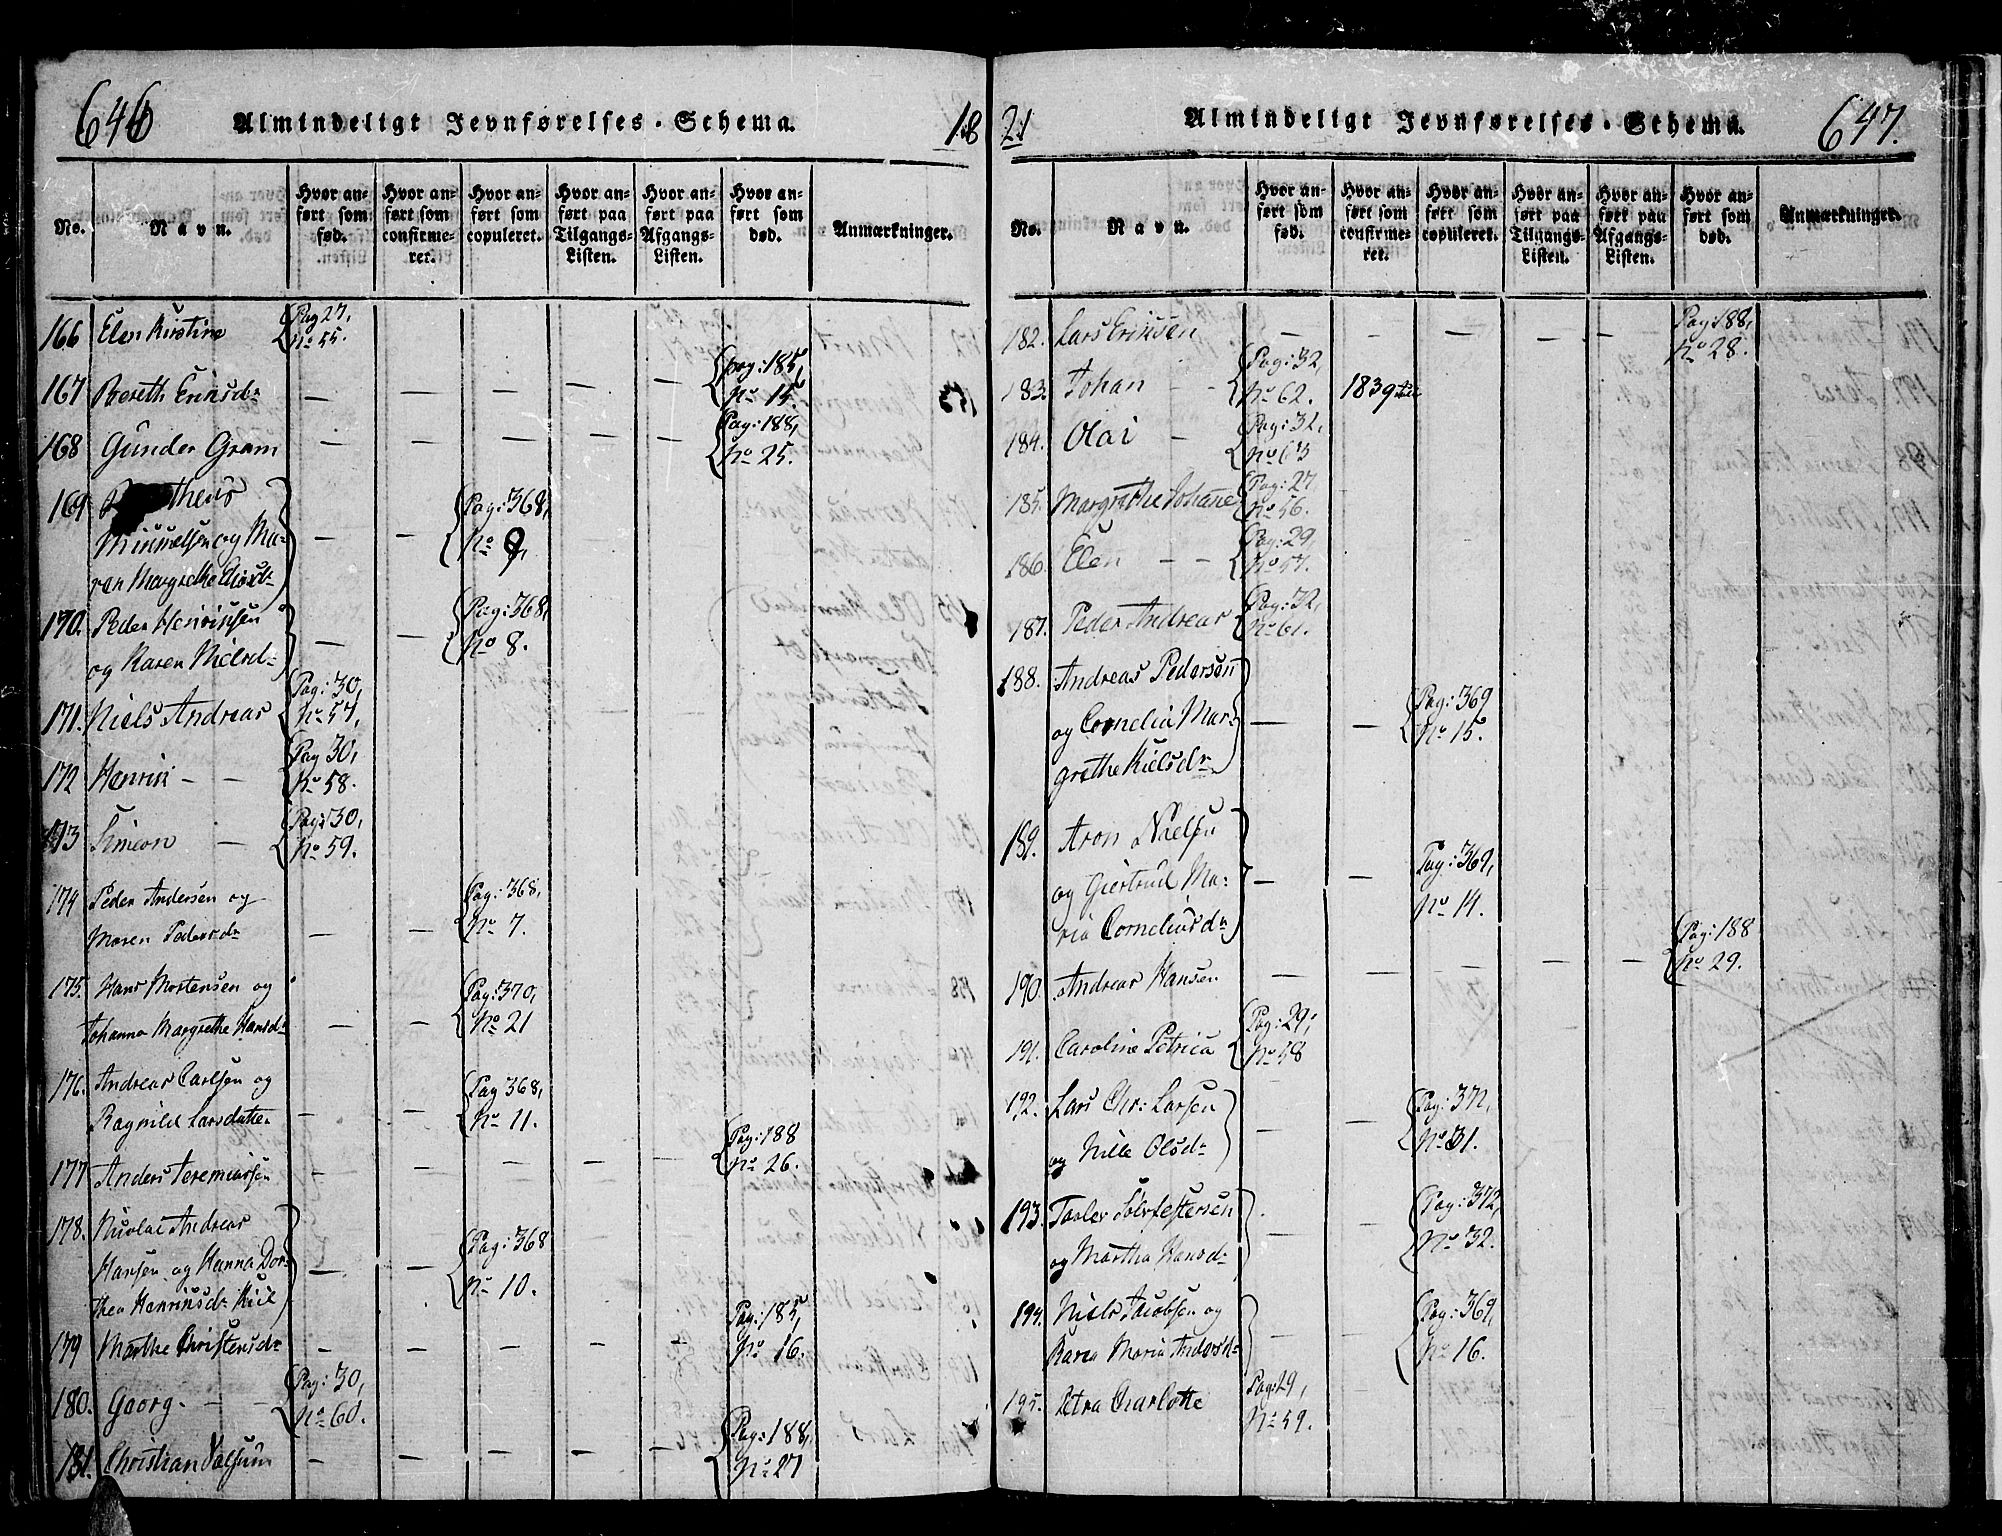 646
Almindeligt Jevnførelses-Schema.
18
No.
Navn.
Hvor anført som fød.
Hvor anført som confirmeret.
Hvor anført som copuleret.
Hvor anført paa Tilgangs-Listen.
Hvor anført paa Afgangs-Listen.
Hvor anført som død.
Anmærkninger.
166 Elen Kirstine Pag 27, No 55.
167 Bereth Eriksdr — — — — — pag: 185, No 15.
168 Gunder Gram — — — — — Pag: 188, No 25.
169
Mikkelsen og Ma- — — Pag: 368, No 9,
ren Margrethe
170. Peder Henriksen
og Karen Nielsdr — — Pag: 368, No 8.
171. Niels Andreas Pag: 30, No 57,
172 Henrik — — Pag 30, No 58.
173 Simeon — Pag: 30, No 59.
174 Peder Andersen og
Maren Pedersdr — — Pag: 368, No 7.
175. Hans Mortensen og
Johanna Margrethe Hansdr — — Pag: 370, No 21
176. Andreas Carlsen og
Ragnild Larsdatter — — Pag 368, No 11.
177 Anders Jeremiassen — — — — — Pag: 188 No 26.
178. Nicolai Andreas
Hansen og Hanna Dor-
thea Henriksdr Kiil — — Pag: 368 No 10.
179 Marthe Christensdr — — — — — Pag: 185, No 16.
180. Georg — — Pag: 30, No 60.
181. Christian — — — — — Pag: 188, No 27
21
Almindeligt Jevnførelses-Schema.
647.
No.
Navn.
Hvor anført som fød.
Hvor anført som confirmeret.
Hvor anført som copuleret.
Hvor anført paa Tilgangs-Listen.
Hvor anført paa Afgangs-Listen.
Hvor anført som død.
Anmærkninger.
182. Lars Eriksen — — — — — Pag: 188, No 28.
183. Johan — — Pag: 32, No 62. 1839
184. Olai — Pag: 32, No 63
185. Margrethe Johane Pag: 27 No 56.
186. Elen — — Pag: 29, No 57.
187. Peder Andreas Pag: 32, No 61.
188. Andreas Pedersen
og Cornelia Mar-
grethe Nielsdr — — Pag: 369 No 15.
189. Aron
og Giertrud Ma-
ria Corneliusdr — — Pag: 369, No 14.
190. Andreas Hansen — — — — — Pag: 188 No 29.
191. Caroline Petrica Pag: 29, No 58
192. Lars Chr: Larsen
og Nille Olsdr — — Pag: 372, No 31.
193. Taaler Sølfestersen
og Martha Hansdr — — Pag: 372, No 32.
194. Niels Jacobsen og
Karen Maria Andersdr — — Pag: 369, No 16.
195. Petra Charlotte Pag: 29, No 59.